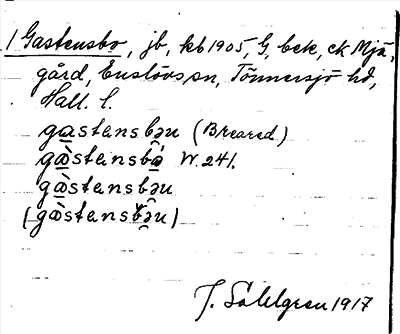 1 Gastensbo, jb, kb 1905, G, bek, ck Mjä,
gård, Enslövs sn, Tönnersjö hd,
Hall. l.
gastensbəu (Breared.)
gàstensbo̊ W. 241.
gàstensbəu
(gàstensbəu)
J. Sahlgren 1917